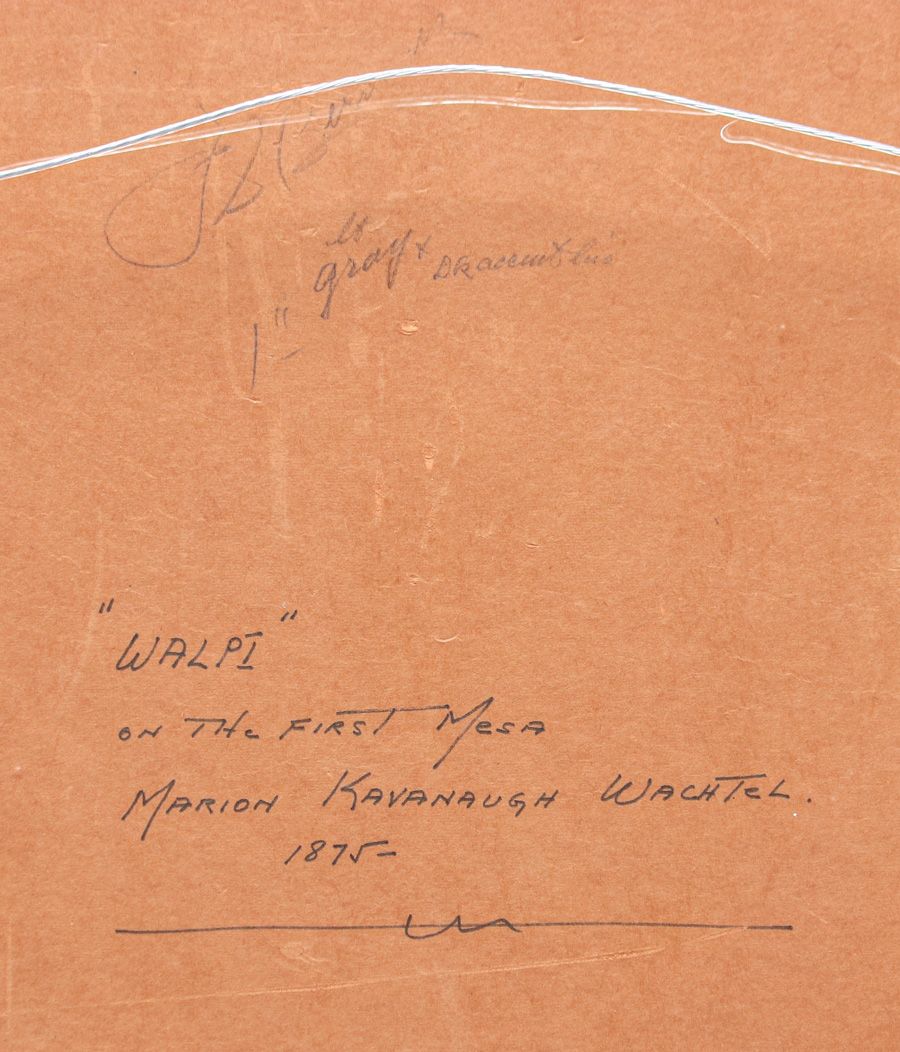 lt
gray +
1"
"WALPI"
ON THe FIRST MeSA
MARION KAVANAUGH WACHTeL.
1875-